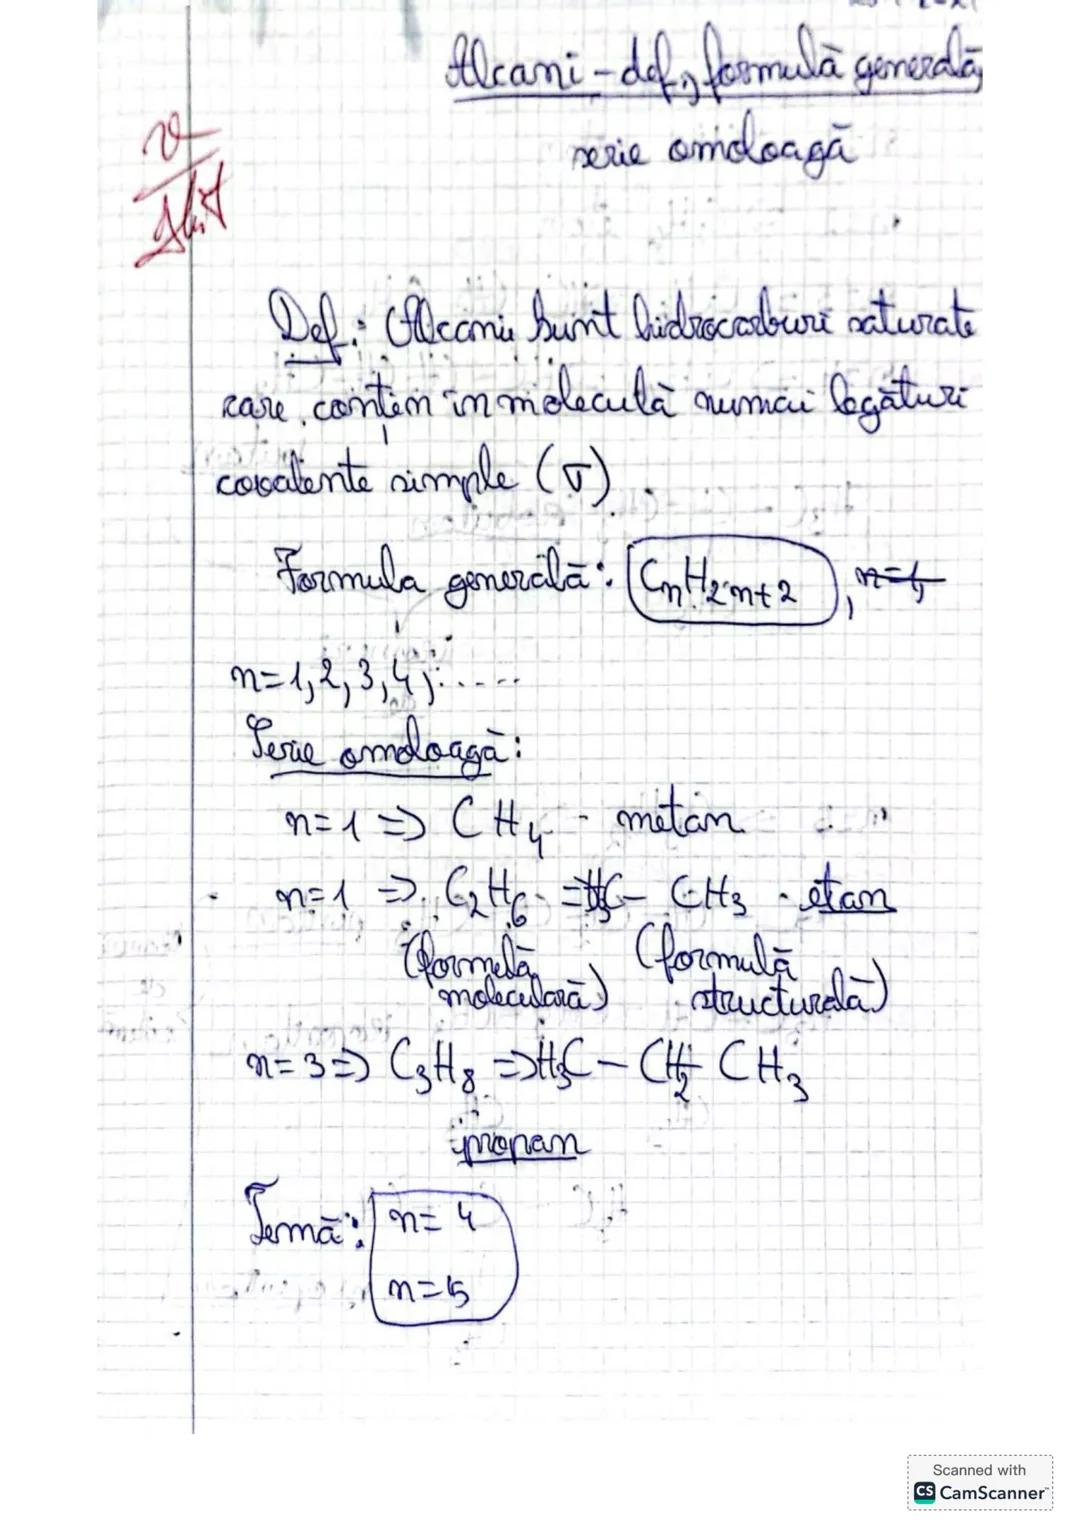 Alcani - def, formulă generală,
serie omoloagă
Def.: Alcanii sunt hidrocarburi saturate
care conțin în moleculă numai legături
covalente simple (σ).
Formula generală: CnH2n+2, n=1,
n=1,2,3,4,.....
Serie omoloagă:
n=1 => CH4 - metan
n=1 => C2H6 = H3C- CH3 - etan
(formulă (formulă
moleculară) structurală)
n=3 => C3H8 => H3C - CH2- CH3
propan
Temă: n=4
n=5
Scanned with
CS CamScanner